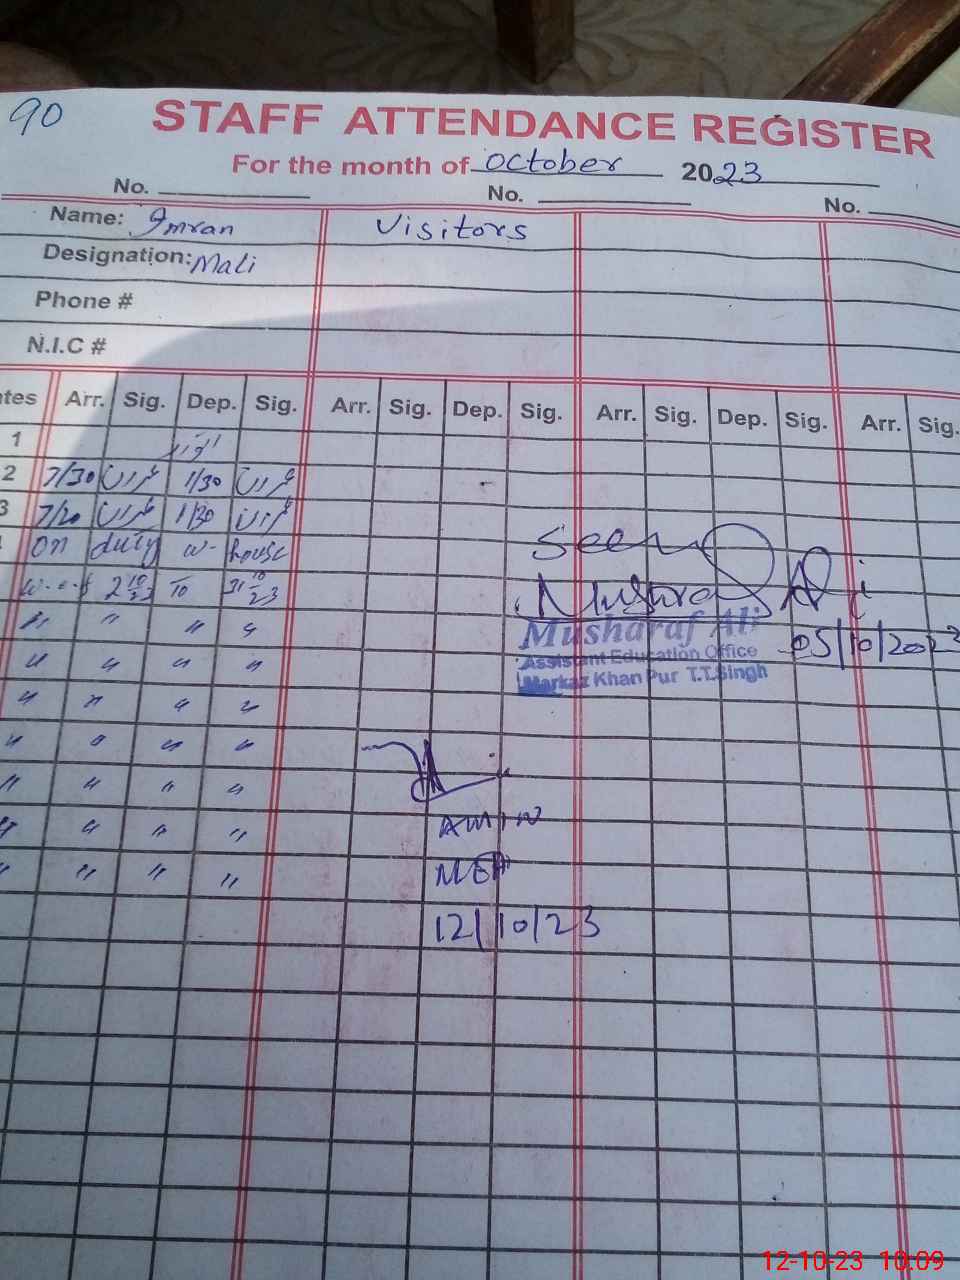 90
STAFF ATTENDANCE REGISTER
For the month of October 2023
No. No. No.
Name: Imran Visitors
Designation: Mali
Phone #
N.I.C #
Arr. Sig. Dep. Sig. Arr. Sig. Dep. Sig. Arr. Sig. Dep. Sig. Arr. Sig.
1 اتوار
2 7/30 عمران 1/30 عمران
3 7/20 عمران 1/30 عمران
On duty w- house
w.e.f 2 10/23 To 31 10/23
" " " "
" " " "
" " " "
" " " "
" " " "
" " " "
" " " "
Seen
Musharaf Ali
05/10/2023
Musharaf Ali
Assistant Education Office
Markaz Khan Pur T.T.Singh
AMIN
MEA
12/10/23
12-10-23 10.09